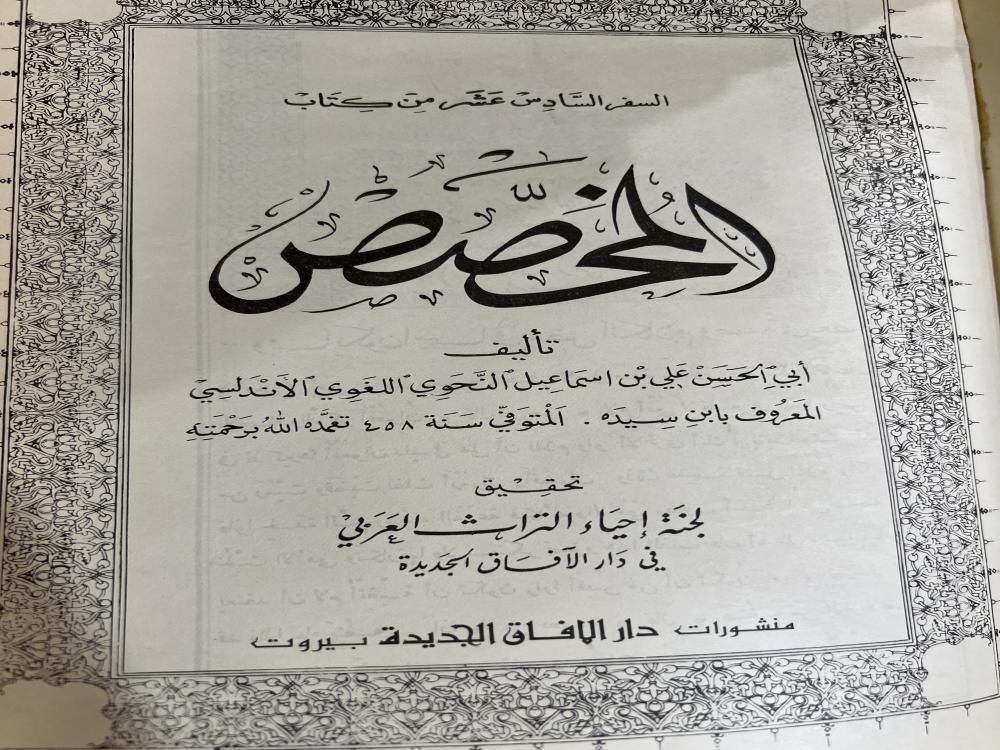 السفر السَّادِسْ عَشَر مِنْ كِتَابْ
المُخَصَّصْ
تأليف
أبي الحَسَنْ عَلي بْن اسمَاعيل النَّحَوي اللغَوي الأندَلسِيْ
المَعرُوف بابن سيدَه . المتوَفّي سَنَة ٤٥٨ تغمَّده اللهُ برَحْمَتِهِ
تحقِيْق
لجنَة إحيَاء التراث العَرَبيْ
في دَار الآفَاق الجَديدَة
منشورات دار الافاق الجديدة بيروت